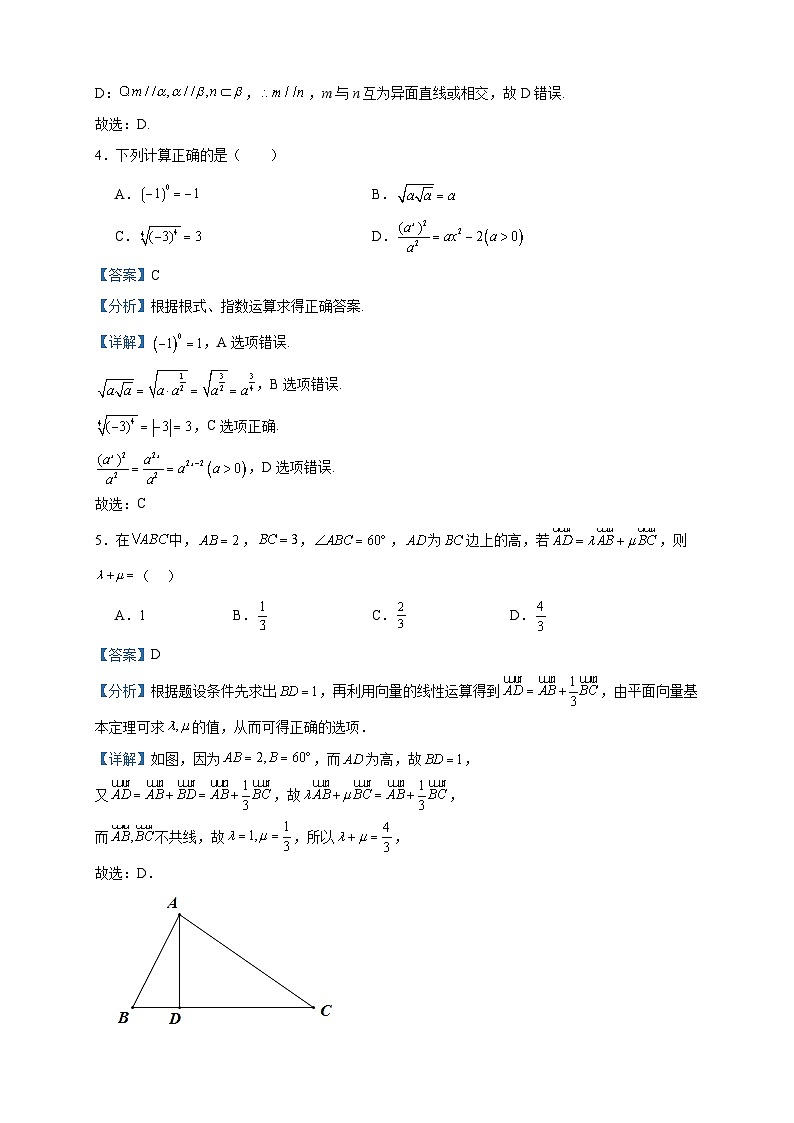 D：Qm//α,α//β,n⊂β，∴m//n，m与n互为异面直线或相交，故D错误.
故选：D.
4．下列计算正确的是（　　）
A．(−1)^0=−1　　B．√(a√a)=a
C．∜((−3)^4)=3　　D．(a^x)^2/a^2=ax^2−2(a>0)
【答案】C
【分析】根据根式、指数运算求得正确答案.
【详解】(−1)^0=1，A选项错误.
√(a√a)=√(a·a^(1/2))=√(a^(3/2))=a^(3/4)，B选项错误.
∜((−3)^4)=|−3|=3，C选项正确.
(a^x)^2/a^2=a^(2x)/a^2=a^(2x−2)(a>0)，D选项错误.
故选：C
5．在VABC中，AB=2，BC=3，∠ABC=60°，AD为BC边上的高，若AD=λAB+μBC，则
λ+μ=（　）
A．1　　B．1/3　　C．2/3　　D．4/3
【答案】D
【分析】根据题设条件先求出BD=1，再利用向量的线性运算得到AD=AB+1/3BC，由平面向量基
本定理可求λ,μ的值，从而可得正确的选项．
【详解】如图，因为AB=2,B=60°，而AD为高，故BD=1，
又AD=AB+BD=AB+1/3BC，故λAB+μBC=AB+1/3BC，
而AB,BC不共线，故λ=1,μ=1/3，所以λ+μ=4/3，
故选：D．
A
B D C